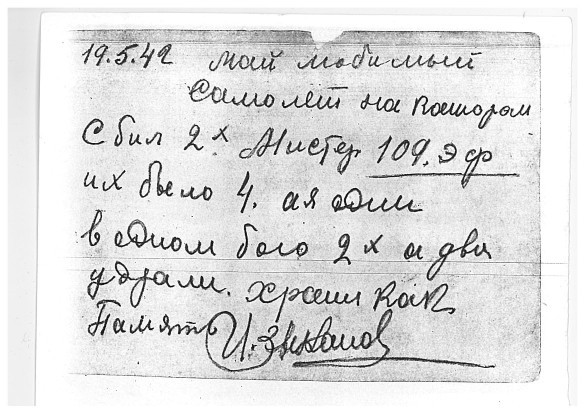 19.5.42 май любимый
самолет на котором
Сбил 2х Мистер 109. Эф
их было 4. а я один
в одном бою 2х а два
удрали. храни как
Память